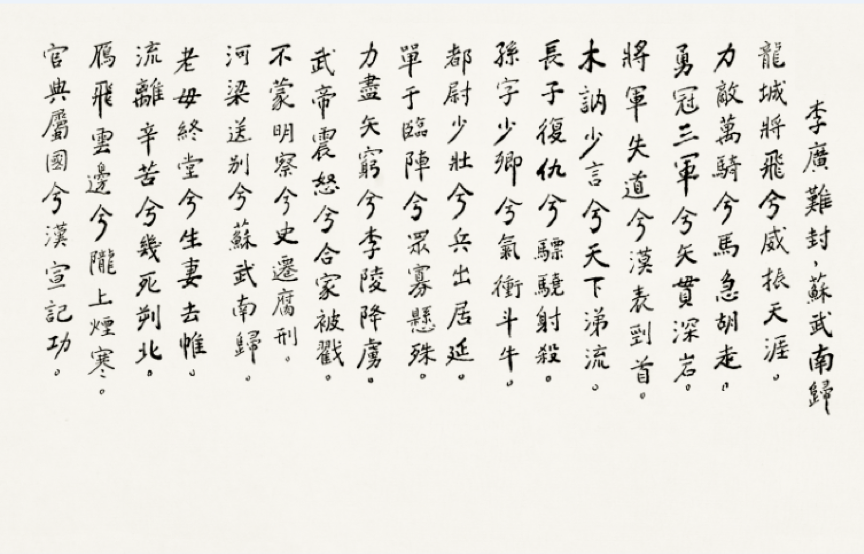 李廣難封，蘇武南歸
龍城將飛兮威振天涯。
力敵萬騎兮馬急胡走。
勇冠三軍兮矢貫深岩。
將軍失道兮漢表剄首。
木訥少言兮天下涕流。
長子復仇兮驃驍射殺。
孫字少卿兮氣衝斗牛。
都尉少壯兮兵出居延。
單于臨陣兮眾寡懸殊。
力盡矢窮兮李陵降虜。
武帝震怒兮合家被戮。
不蒙明察兮史遷腐刑。
河梁送別兮蘇武南歸。
老母終堂兮生妻去帷。
流離辛苦兮幾死朔北。
雁飛雲邊兮隴上煙寒。
官典屬國兮漢宣記功。